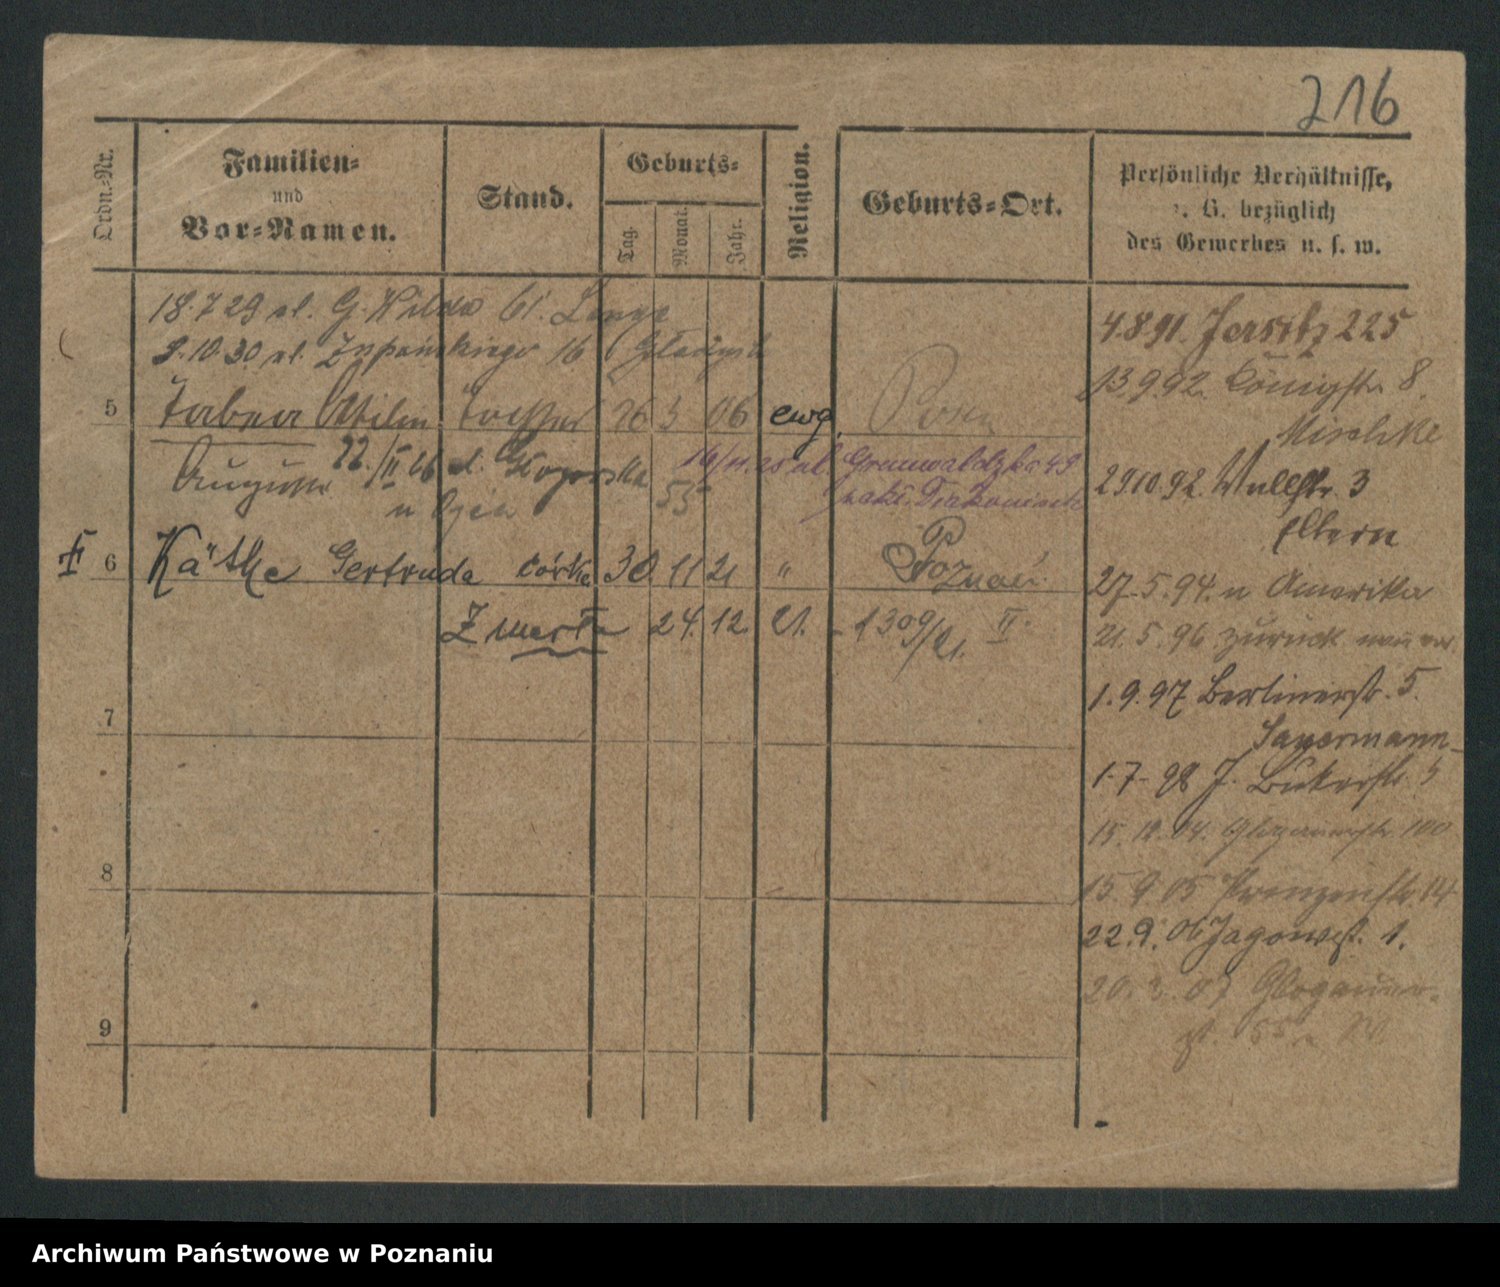 216
Ordn.-Nr.
Familien-
und
Vor-Namen.
Stand.
Geburts-
Tag.
Monat.
Jahr.
Religion.
Geburts-Ort.
Persönliche Verhältnisse,
z. B. bezüglich
des Gewerbes u. s. w.
18.7.29 ul. G. Wilda 61.
9.10.30 ul. Zupańskiego 16
5 Wilm Tochter 26 3 06 ewg. Posen
Auguste 22./II 26 ul.
55
16/11.28 ul. Grunwaldzka 49
II 6 Käthe Gertruda córka 30. 11 21 " Poznań.
Zmarła 24. 12. 21. - 1309/21. II.
7
8
9
4.8.91. Jersitz 225
13.9.92. Königstr. 8.
Mischke
29.10.92. Wallstr. 3
Eltern
27.5.94. n Amerika
21.5.96 zurück
1.9.97 Berlinerstr. 5.
Sauermann
1.7.98 J. Bukerstr. 5
15.12.04. Glogauerstr. 100
15.9.05 Prinzenstr. 14
22.9.06 Jagowstr. 1.
20.3.07 Glogauer-
st.
Archiwum Państwowe w Poznaniu